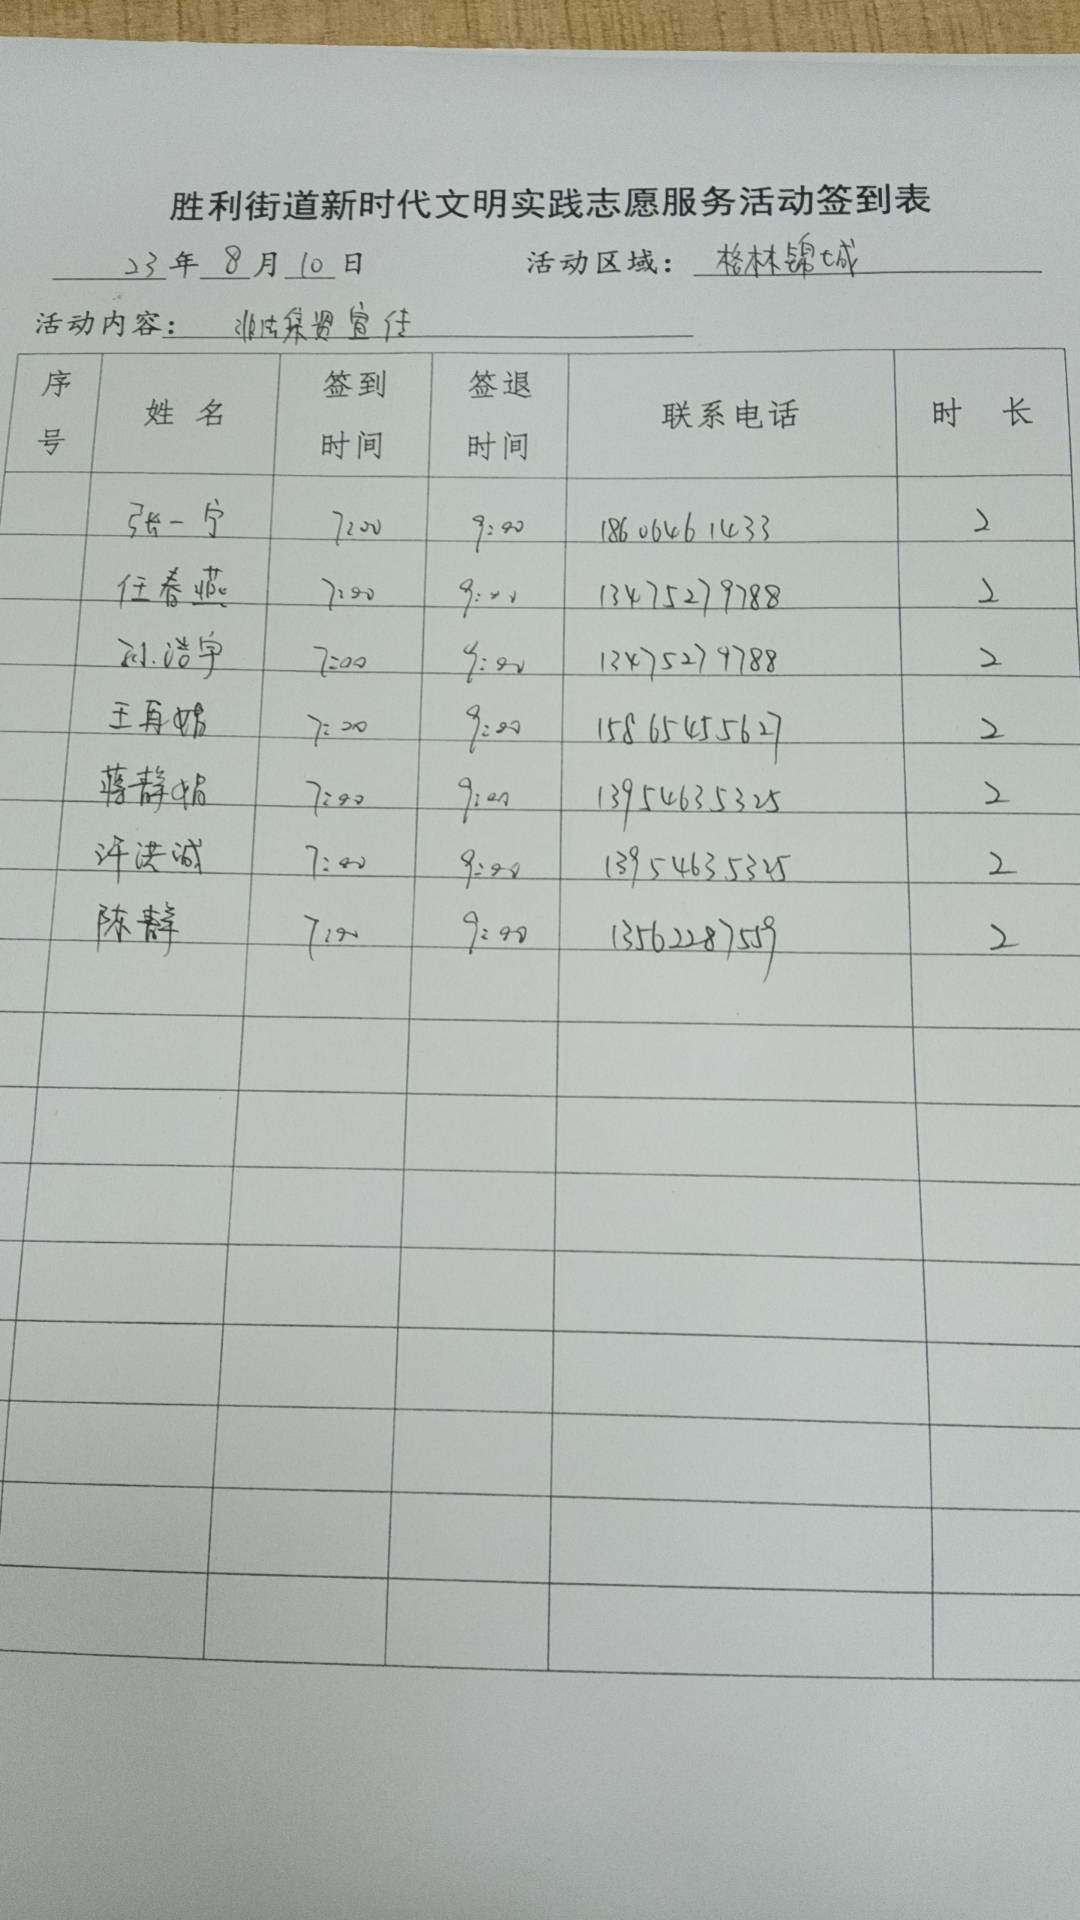 胜利街道新时代文明实践志愿服务活动签到表
23年8月10日 活动区域：格林锦城
活动内容：非法集资宣传
序号 姓名 签到时间 签退时间 联系电话 时长
张一宁 7:00 9:00 18606461433 2
任春燕 7:00 9:00 13475279788 2
孙浩宇 7:00 9:00 13475279788 2
王再娟 7:00 9:00 15865455627 2
蒋静娟 7:00 9:00 13954635325 2
许洪诚 7:00 9:00 13954635325 2
陈静 7:00 9:00 13562287559 2